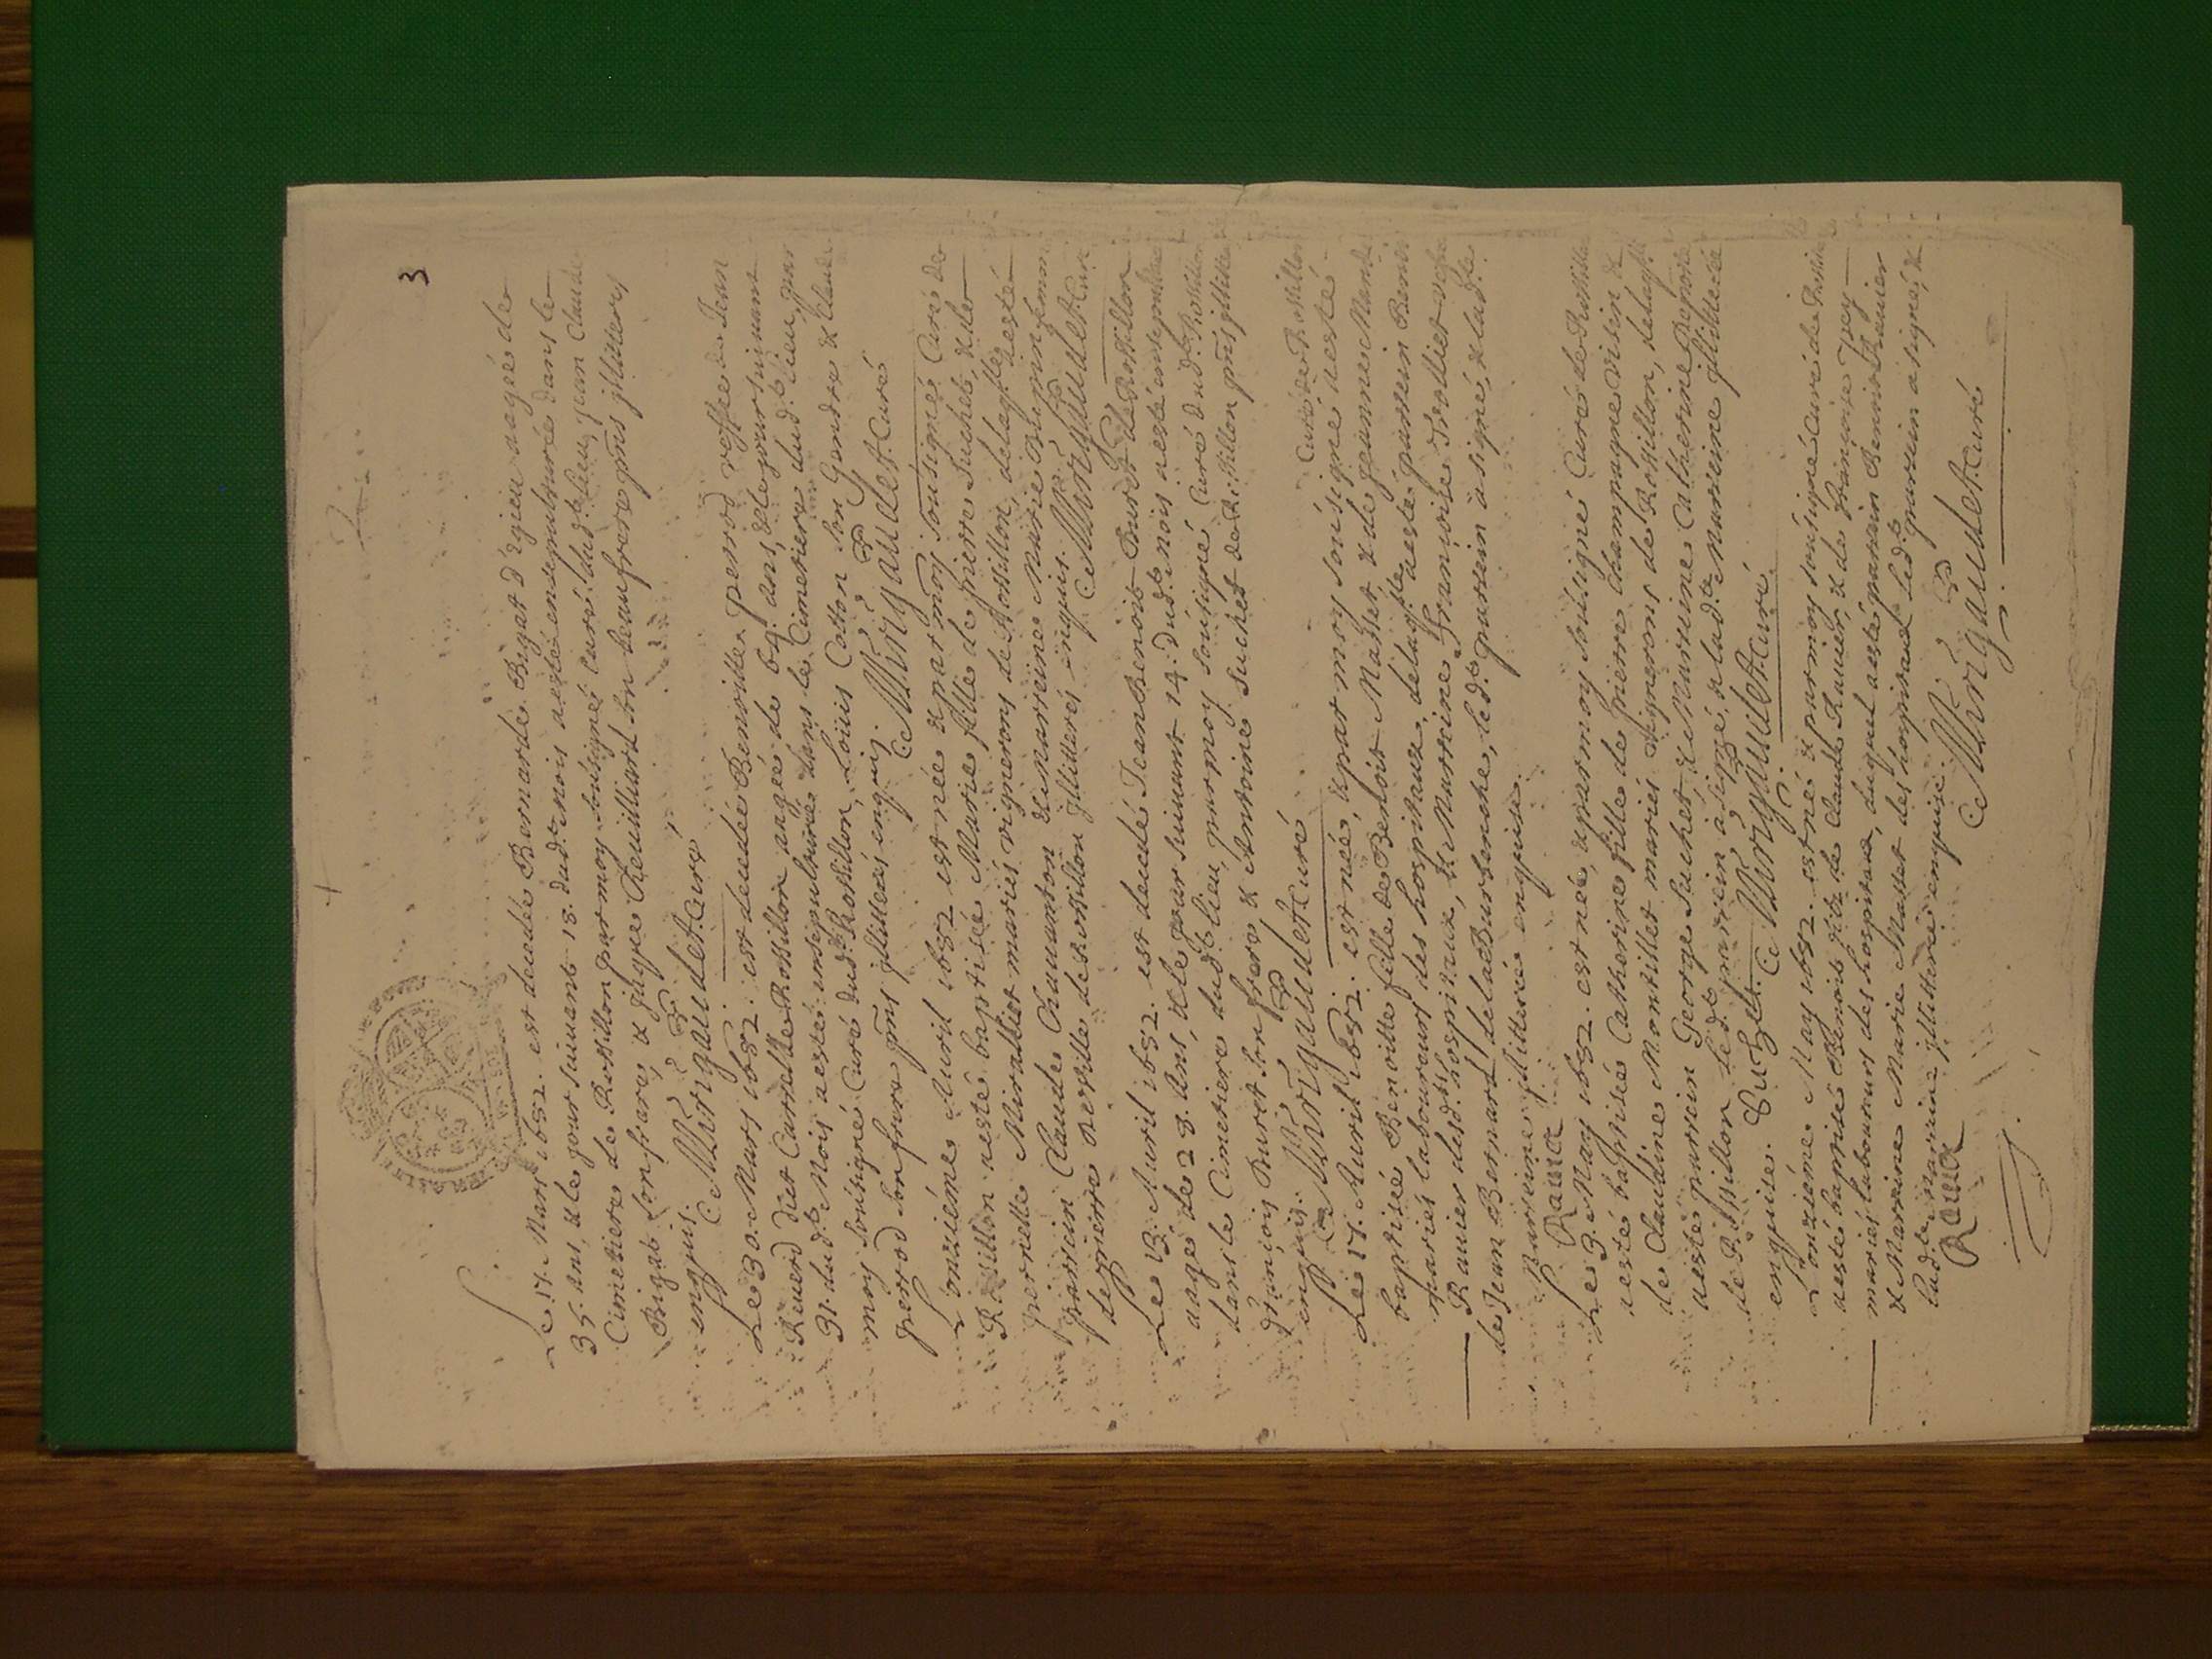 3
Le 17. Mars 1692. est decedée Bernarde Bigat d'Izieu aagée de
35. ans, & le jour suivant 18. dud.t mois a esté ensepulturée dans le
Cimetiere de Rossillon par moy soûsigné Curé dud.t lieu, jean Claude
Bigat son frere, & son beaufrere pñs jlliteres
enquis.
C Mirigaudet. Curé
Le 30. Mars 1692. est decedée Benoitte perrod de Jean
Rossillon aagée de 64. ans, & le jour suivant
31. dud.t Mois a esté ensepulturée dans le Cimetiere dud.t lieu, par
moy soûsigné Curé dud.t Rossillon, Loüis Cotton son Gendre & Claude
perrod son frere pñs jlliterés enquis.
C Mirigaudet. Curé
L'onziéme Auril 1692 est née & par moy soûsigné Curé de
Rossillon a esté baptisée Marie fille de pierre Suchet, & de
pernette Miralliet mariés vignerons de Rossillon, de laq.lle a esté
parrein Claude Chaumarton & Marreine Marie femme
de pierre de Rossillon jlliterés enquis. C Mirigaudet. Curé
Le 13. Auril 1692. est decedé Jean Benoit Buret de Rossillon
aagé de 28. Ans, & le jour suivant 14. dud.t mois a esté ensepulturé
dans le Cimetiere dud.t lieu, par moy soûsigné Curé dud.t Rossillon
françois Buret son frere & Antoine Suchet de Rossillon pñs jlliterés
enquis. C Mirigaudet Curé
Curé de Rossillon
Le 17. Auril 1692. est née, & par moy soûsigné a esté
baptisée Benoitte fille de Benoit Masset & de jeanne
mariés laboureurs des hospitaux, de laq.lle a esté parrein Benoit
Rauier desd.ts hospitaux, & Marreine françoise
de Jean Bernard de la Burbenche, led.t parrein a signé, & lad.te
Marreine jlliterée enquise.
Rauier
Le 3. May 1692. est née, & par moy soûsigné Curé de Rossillon
a esté baptisée Catherine fille de pierre Champagne &
de Claudine Montillet mariés vignerons de Rossillon, de laq.lle
a esté parrein George Suchet, & Marreine Catherine
de Rossillon led.t parrein a signé, & lad.te Marreine jlliterée
enquise. Suchet. C Mirigaudet. Curé.
L'onziéme May 1692. est né & par moy soûsigné Curé de Rossillon
a esté baptisé Benoit fils de Claude Rauier, & de françoise
mariés laboureurs des hospitaux, duquel a esté parrein Benoit Rauier
& Marreine Marie Masset des hospitaux led.t parrein a signé, &
lad.te marreine jlliterée enquise.
Rauier C Mirigaudet. Curé